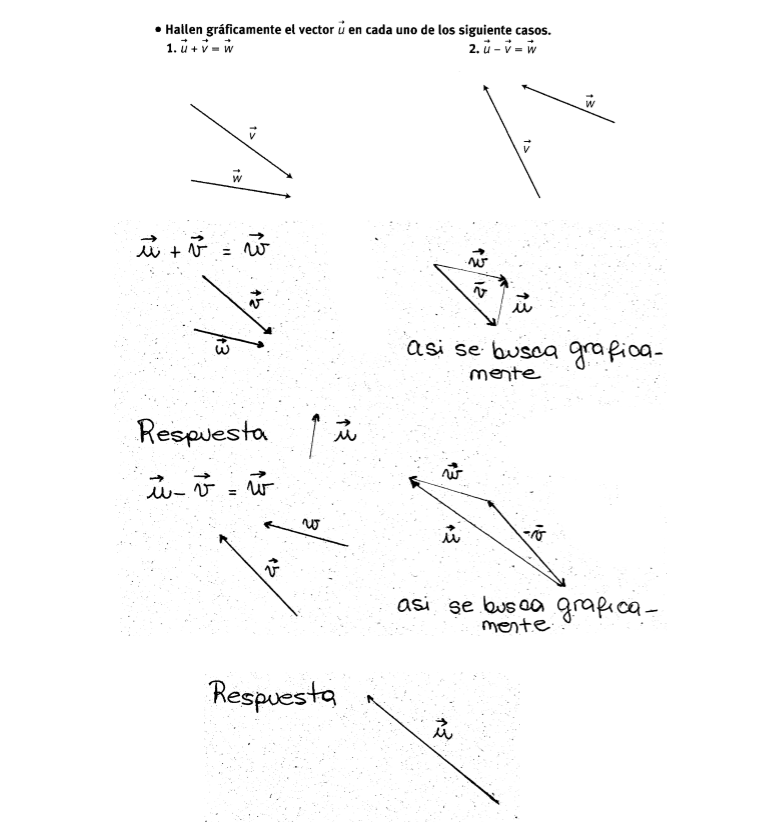 • Hallen gráficamente el vector u⃗ en cada uno de los siguiente casos.
1. u⃗ + v⃗ = w⃗
2. u⃗ – v⃗ = w⃗
v⃗
w⃗
w⃗
v⃗
u⃗ + v⃗ = w⃗
v⃗
w⃗
w⃗
v̄
u⃗
asi se busca grafica-
mente
Respuesta
u⃗
u⃗ – v⃗ = w⃗
w
v⃗
w⃗
u⃗
-v̄
asi se busca grafica-
mente
Respuesta
u⃗